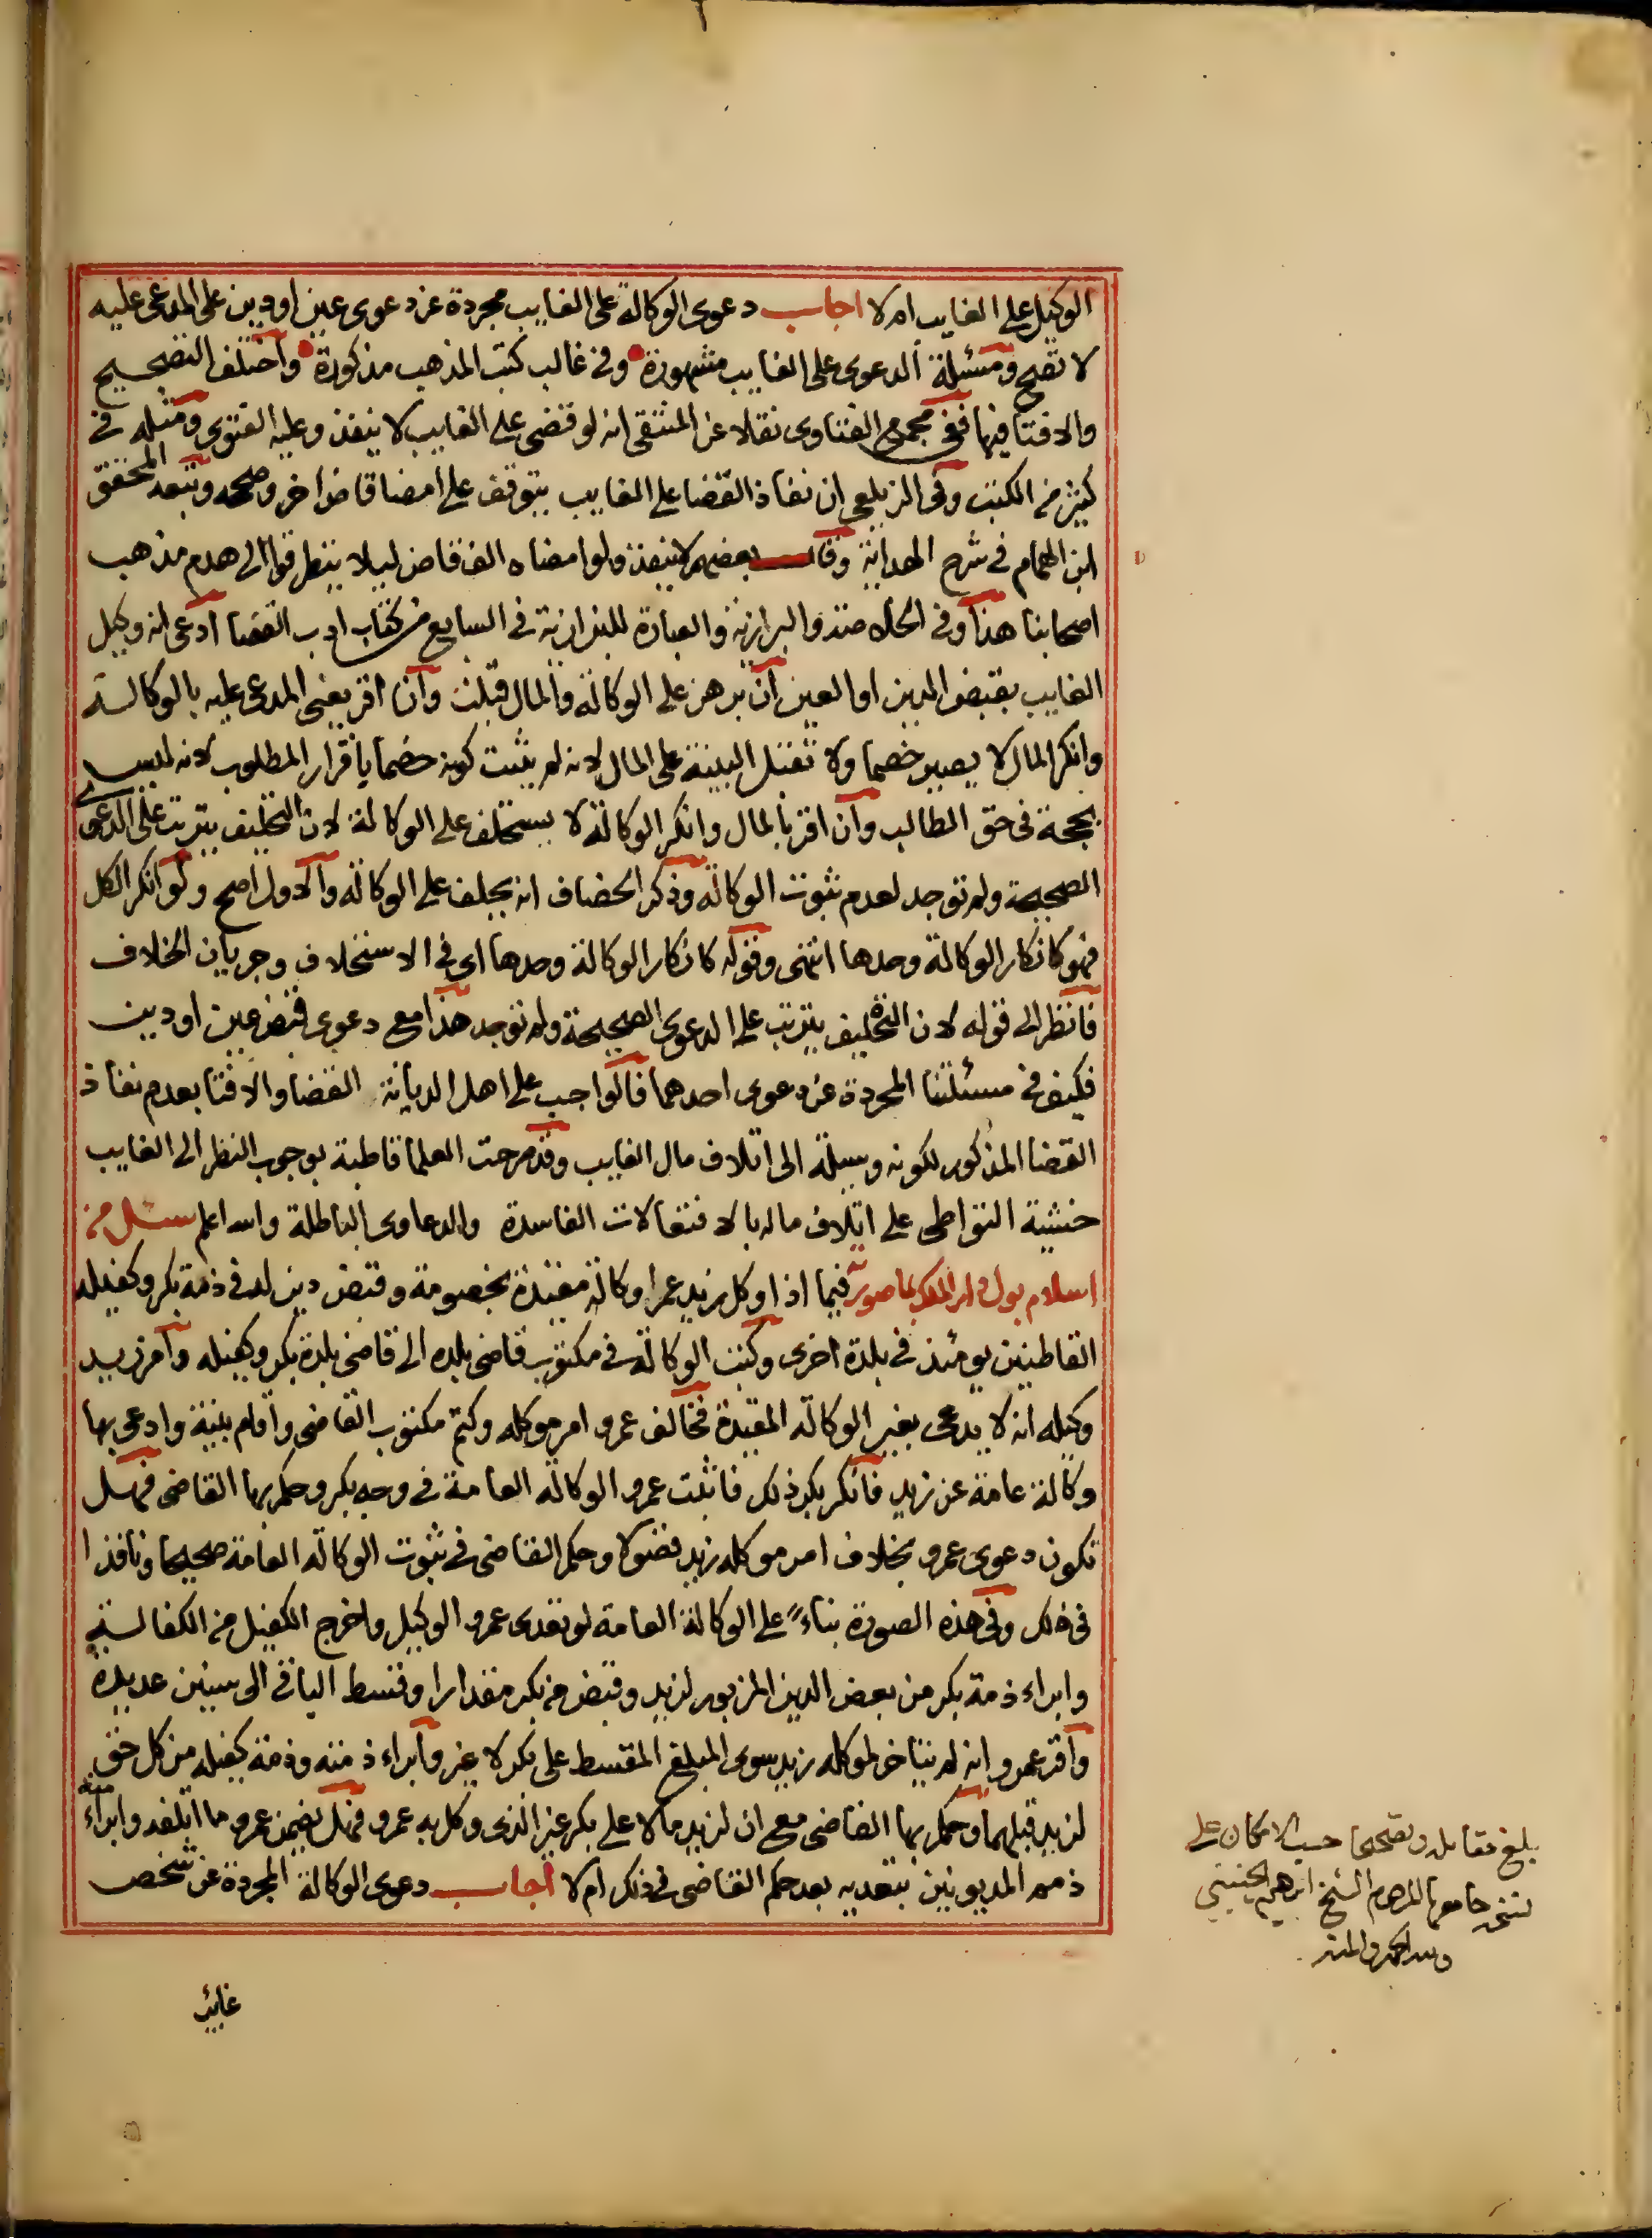 الوكيل على الغايب ام لا اجاب دعوى الوكالة على الغايب مجردة عن دعوى عين او دين على المدعى عليه
لا تصح ومسئلة الدعوى على الغايب مشهورة وفى غالب كتب المذهب مذكورة واختلف التصحيح
والافتا فيها ففى مجمع الفتاوى نقلا عن المنتقى انه لو قضى على الغايب لا ينفذ وعليه الفتوى ومثله فى
كثير من الكتب وفى الزيلعى ان نفاذ القضا على الغايب يتوقف على امضا قاض اخر وصححه وتبعه المحقق
ابن الهمام فى شرح الهداية وقال بعضهم لا ينفذ ولو امضاه الف قاض ليلا يتطرقوا الى هدم مذهب
اصحابنا هذا وفى الخلاصة والبزازية والعبارة للبزازية فى السابع من كتاب ادب القضا ادعى انه وكيل
الغايب بقبض الدين او العين ان برهن على الوكالة والمال قبلت وان اقر يعنى المدعى عليه بالوكالة
وانكر المال لا يصير خصما ولا تقبل البينة على المال لانه لم يثبت كونه خصما باقرار المطلوب لانه ليس
بحجة فى حق الطالب وان اقر بالمال وانكر الوكالة لا يستحلف على الوكالة لان التحليف يترتب على الدعوى
الصحيحة ولم توجد لعدم ثبوت الوكالة وذكر الخصاف انه يحلف على الوكالة والاول اصح ولو انكر الكل
فهو كانكار الوكالة وحدها انتهى وقوله كانكار الوكالة وحدها اى فى الاستحلاف وجريان الخلاف
فانظر الى قوله لان التحليف يترتب على الدعوى الصحيحة ولم توجد هذا مع دعوى قبض عين او دين
فكيف فى مسئلتنا المجردة عن دعوى احدهما فالواجب على اهل الديانة القضا والافتا بعدم نفاذ
القضا المذكور لكونه وسيلة الى اتلاف مال الغايب وقد صرحت العلما قاطبة بوجوب النظر الى الغايب
خشية التواطى على اتلاف ماله بالافتعالات الفاسدة والدعاوى الباطلة والله اعلم سئل من
اسلام بول دار الملك بما صورته فيما اذا وكل زيد عمرا وكالة مقيدة بخصومة وقبض دين له فى ذمة بكر وكفيله
القاطنين يومئذ فى بلدة اخرى وكتب الوكالة فى مكتوب قاضى بلده الى قاضى بلدة بكر وكفيله وامر زيد
وكيله انه لا يدعى بغير الوكالة المقيدة فخالف عمرو امر موكله وكتم مكتوب القاضى واقام بينة وادعى بها
وكالة عامة عن زيد فانكر بكر ذلك فاثبت عمرو الوكالة العامة فى وجه بكر وحكم بها القاضى فهل
تكون دعوى عمرو بخلاف امر موكله زيد فضولا وحكم القاضى فى ثبوت الوكالة العامة صحيحا ونافذا
فى ذلك وفى هذه الصورة بناء على الوكالة العامة لو تعدى عمرو الوكيل واخرج الكفيل من الكفالة
وابراء ذمة بكر من بعض الدين المزبور لزيد وقبض من بكر مقدارا وقسط الباقى الى سنين عديدة
واقر عمرو انه لم يتاخر لموكله زيد سوى المبلغ المقسط على بكر لا غير وابراء ذمته وذمة كفيله من كل حق
لزيد قبلهما وحكم بها القاضى مع ان لزيد مالا على بكر غير الذى وكل به عمرو فهل يضمن عمرو ما اتلفه وابراء منه
ذمم المديونين بتعديه بعد حكم القاضى فى ذلك ام لا اجاب دعوى الوكالة المجردة عن شخص
غائب
بلغ مقابلة وتصحيحا حسب الامكان على
نسخة جامعها المرحوم الشيخ ابرهيم الجنيني
ولله الحمد والمنة